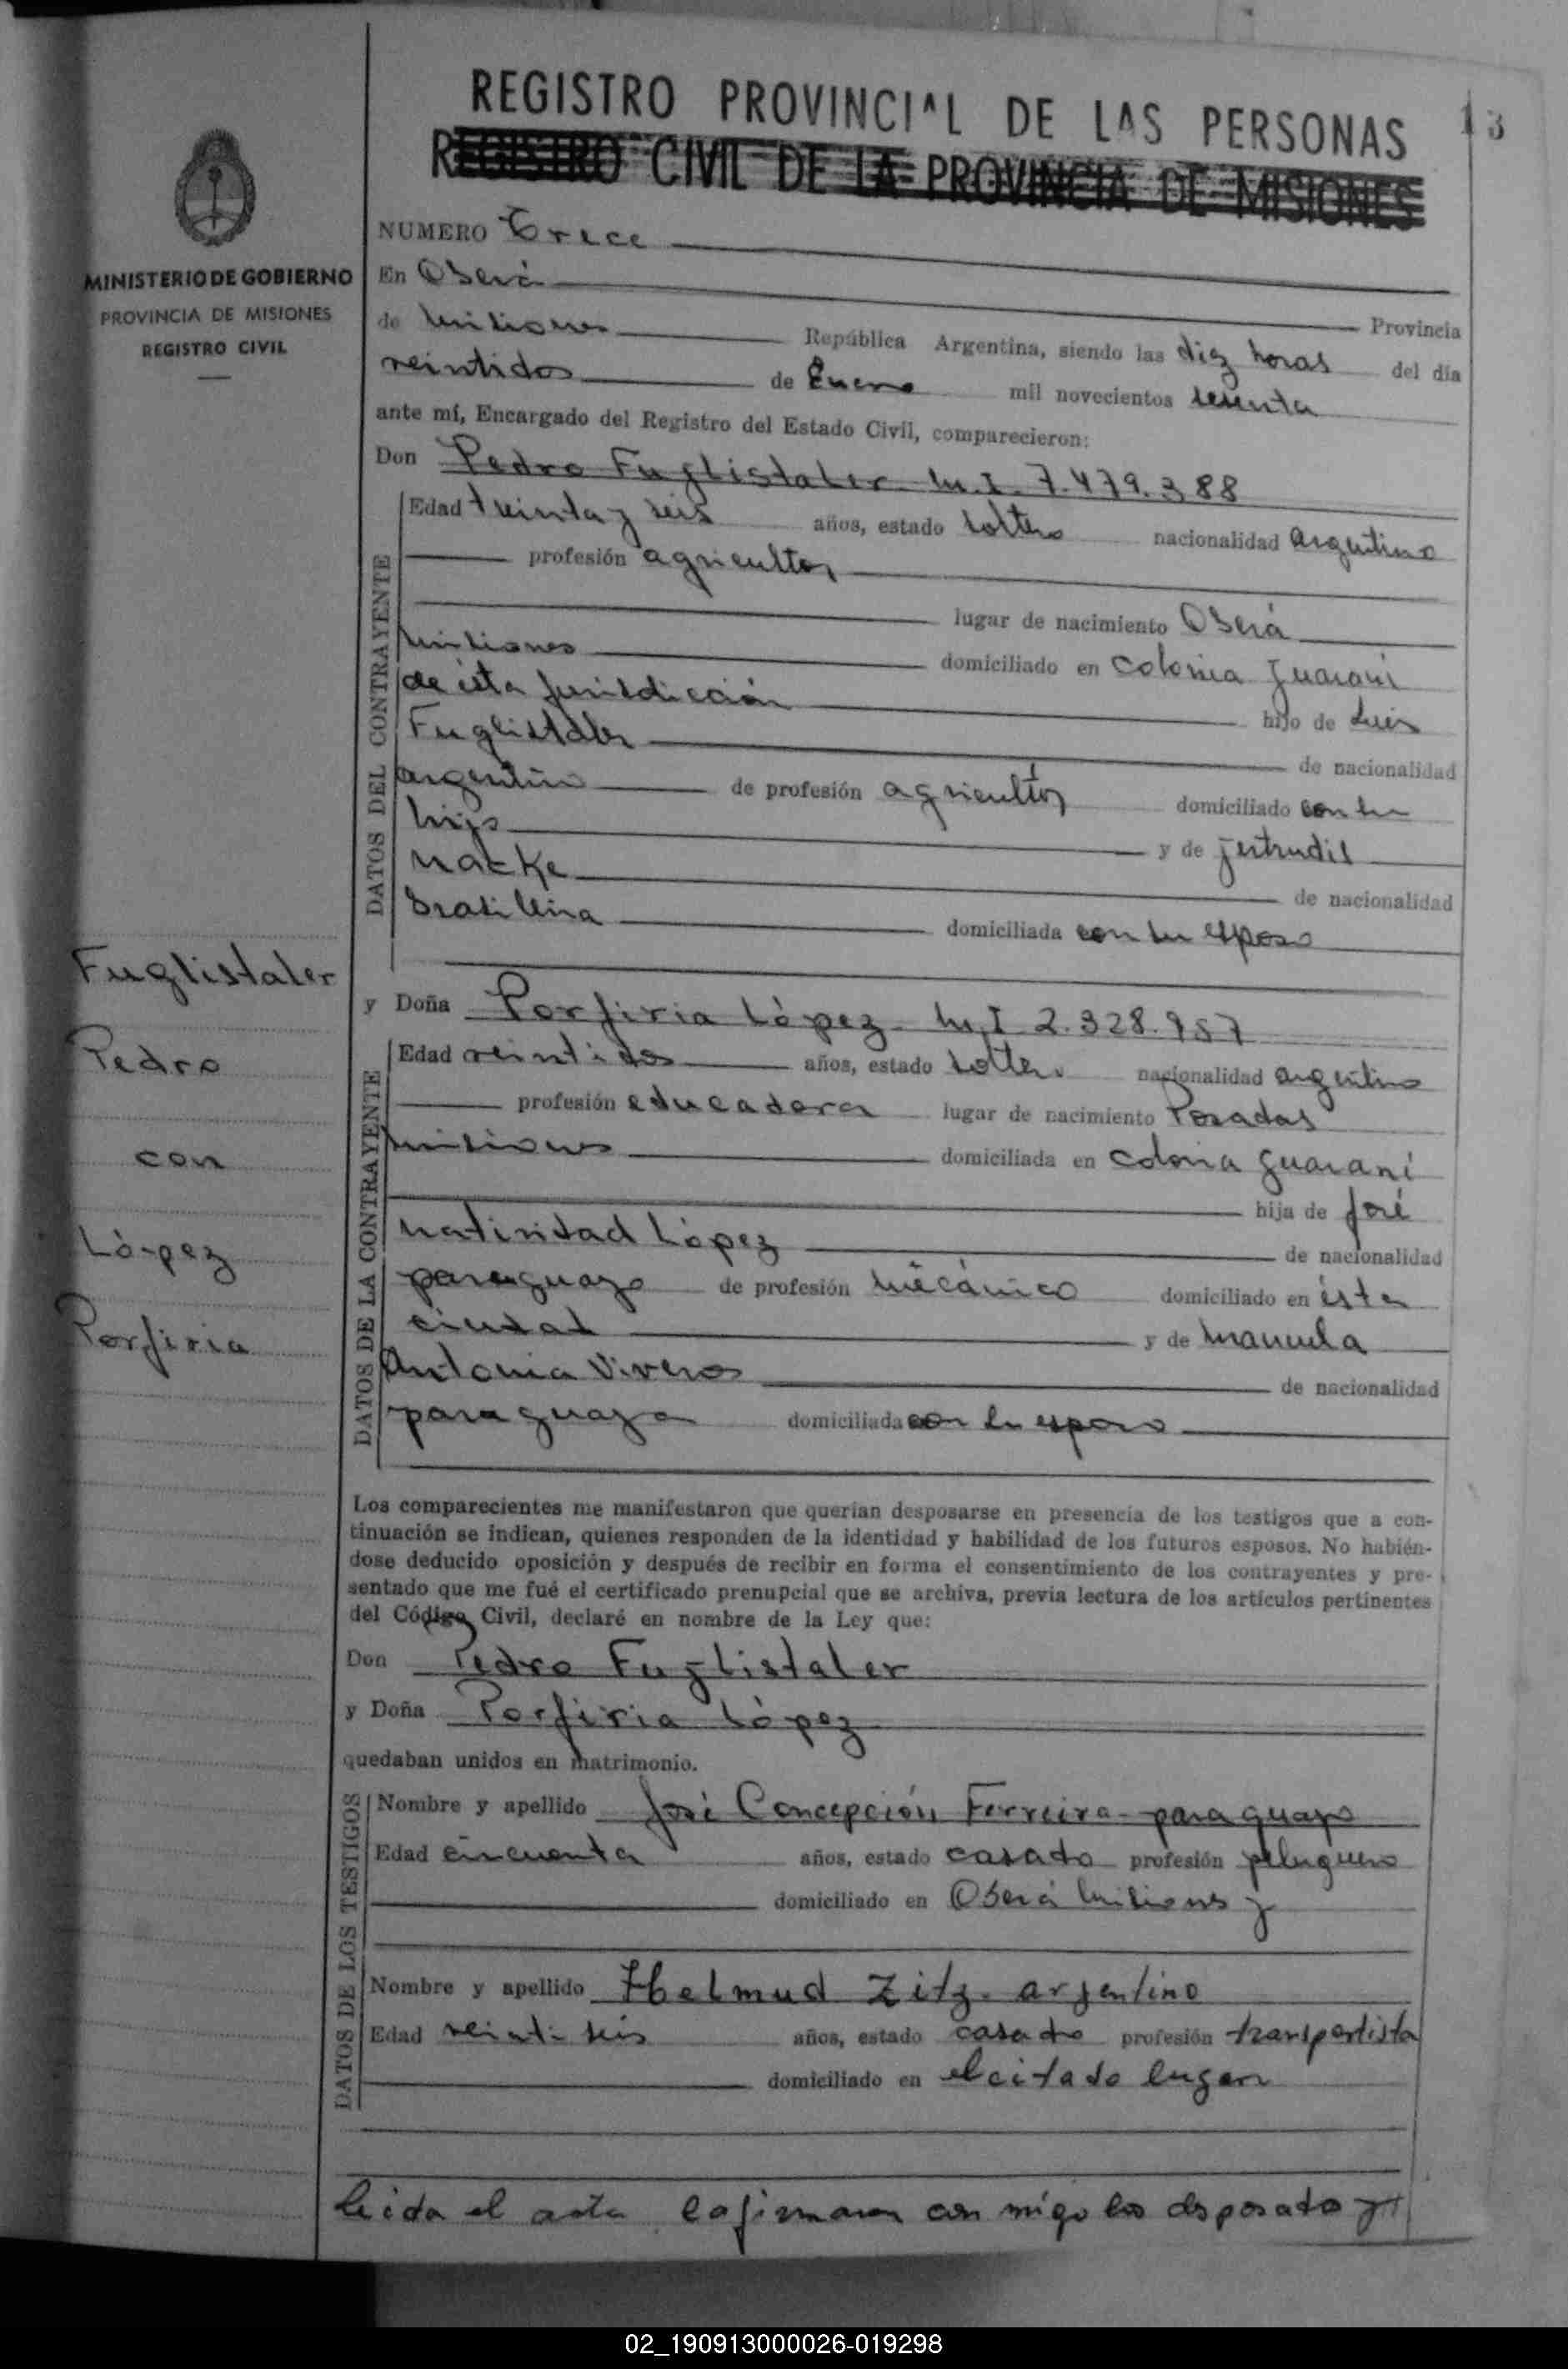 REGISTRO PROVINCIAL DE LAS PERSONAS
13
REGISTRO CIVIL DE LA PROVINCIA DE MISIONES
MINISTERIO DE GOBIERNO
PROVINCIA DE MISIONES
REGISTRO CIVIL
NUMERO Trece
En Oberá
Provincia
de Misiones República Argentina, siendo las diez horas del día
veintidos de Enero mil novecientos sesenta
ante mí, Encargado del Registro del Estado Civil, comparecieron:
Don Pedro Fuglistaler M.I. 7.479.388
DATOS DEL CONTRAYENTE
Edad treinta y seis años, estado soltero nacionalidad argentino
profesión agricultor
lugar de nacimiento Oberá
Misiones domiciliado en Colonia Guaraní
de ésta jurisdicción hijo de Luis
Fuglistaler de nacionalidad
argentino de profesión agricultor domiciliado con su
hijo y de Jertrudis
Natke de nacionalidad
brasilera domiciliada con su esposo
Fuglistaler
Pedro
con
López
Porfiria
y Doña Porfiria López M.I 2.328.957
DATOS DE LA CONTRAYENTE
Edad veintidos años, estado soltera nacionalidad argentina
profesión educadora lugar de nacimiento Posadas
Misiones domiciliada en Colonia Guaraní
hija de José
Natividad López de nacionalidad
paraguayo de profesión mecánico domiciliado en ésta
ciudad y de Manuela
Antonia Viveros de nacionalidad
paraguaya domiciliada con su esposo
Los comparecientes me manifestaron que querían desposarse en presencia de los testigos que a con-
tinuación se indican, quienes responden de la identidad y habilidad de los futuros esposos. No habién-
dose deducido oposición y después de recibir en forma el consentimiento de los contrayentes y pre-
sentado que me fué el certificado prenupcial que se archiva, previa lectura de los artículos pertinentes
del Código Civil, declaré en nombre de la Ley que:
Don Pedro Fuglistaler
y Doña Porfiria López
quedaban unidos en matrimonio.
DATOS DE LOS TESTIGOS
Nombre y apellido José Concepción Ferreira - paraguayo
Edad cincuenta años, estado casado profesión peluquero
domiciliado en Oberá Misiones y
Nombre y apellido Helmud Zitz - argentino
Edad veintiseis años, estado casado profesión transportista
domiciliado en el citado lugar
leida el acta la firmaron con migo los desposado y
02_190913000026-019298